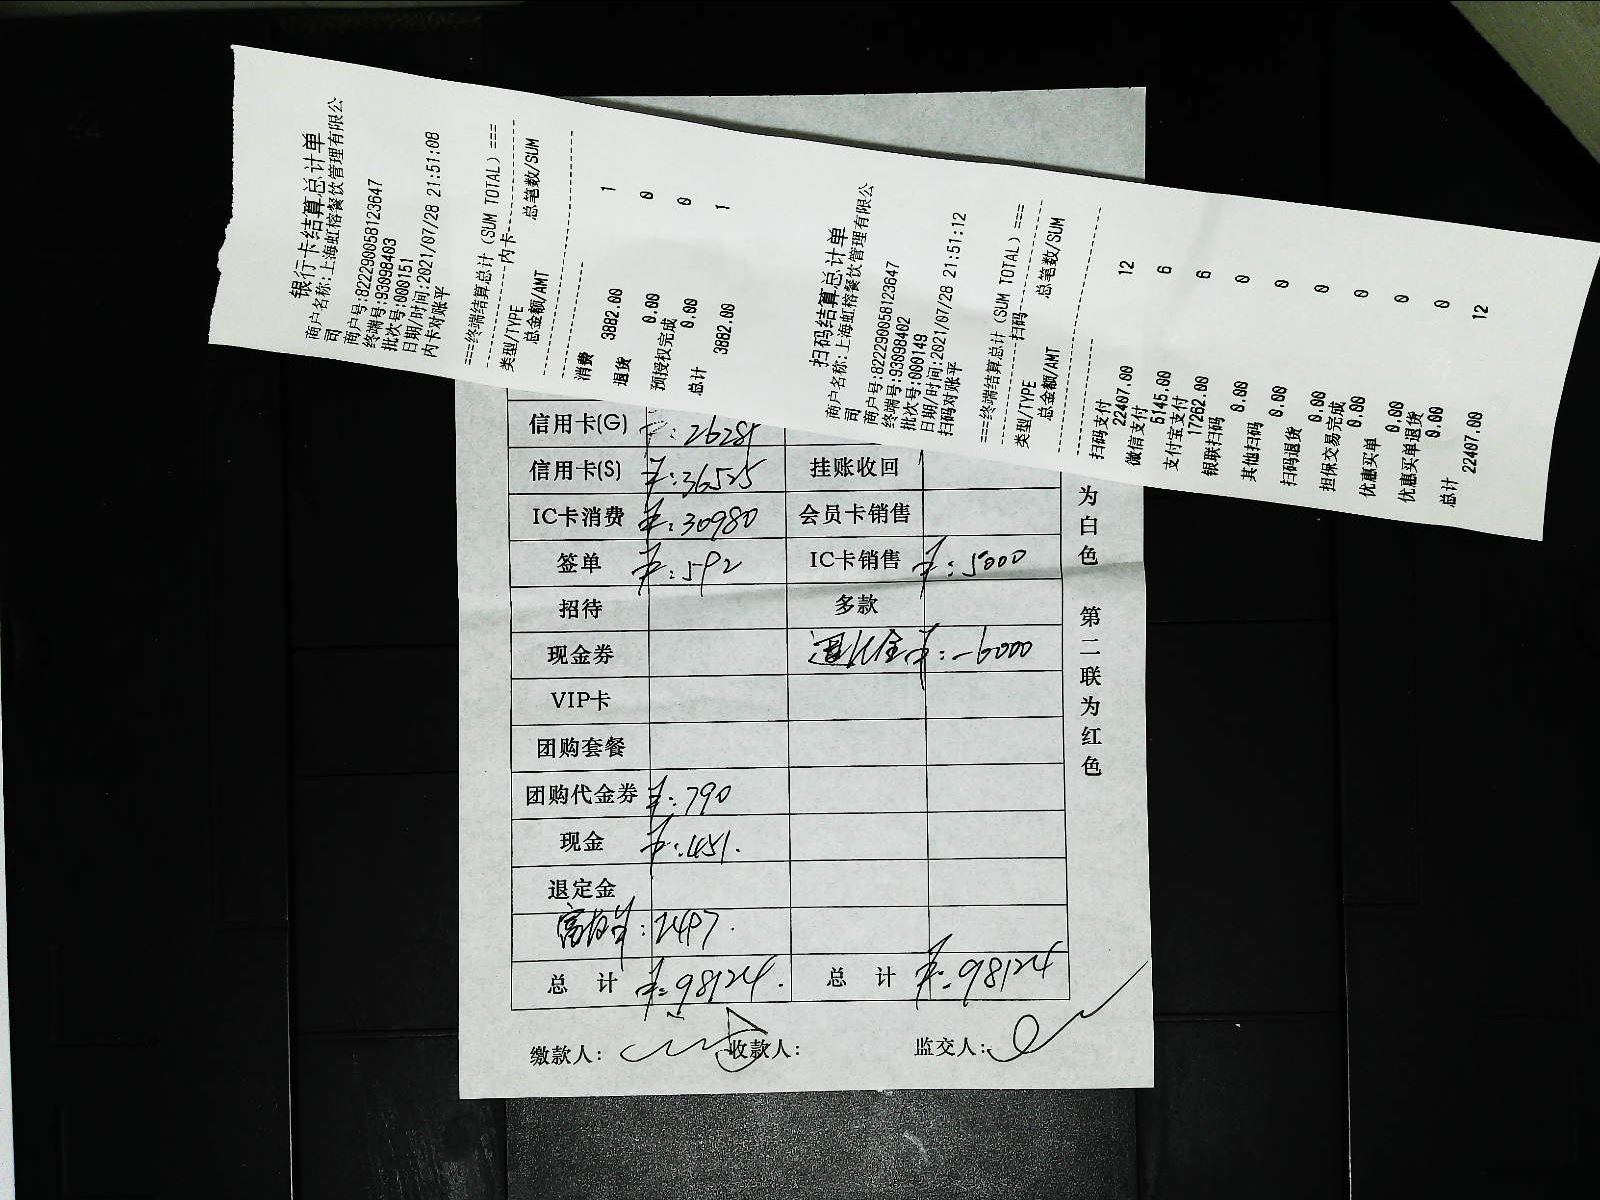 银行卡结算总计单
商户名称:上海虹榕餐饮管理有限公
司
商户号:822290058123647
终端号:93098403
批次号:000151
日期/时间:2021/07/28 21:51:08
内卡对账平
===终端结算总计(SUM TOTAL)===
内卡
类型/TYPE 总笔数/SUM
总金额/AMT
消费 1
3882.00
退货 0
0.00
预授权完成 0
0.00
总计 1
3882.00
扫码结算总计单
商户名称:上海虹榕餐饮管理有限公
司
商户号:822290058123647
终端号:93098402
批次号:000149
日期/时间:2021/07/28 21:51:12
扫码对账平
===终端结算总计(SUM TOTAL)===
扫码
类型/TYPE 总笔数/SUM
总金额/AMT
扫码支付 12
22407.00
微信支付 6
5145.00
支付宝支付 6
17262.00
银联扫码 0
0.00
其他扫码 0
0.00
扫码退货 0
0.00
担保交易完成 0
0.00
优惠买单 0
0.00
优惠买单退货 0
0.00
总计 12
22407.00
信用卡(G) ¥:26289
信用卡(S) ¥:36525 挂账收回
IC卡消费 ¥:30980 会员卡销售
签单 ¥:592 IC卡销售 ¥:5000
招待 多款
现金券 退订金 ¥:-6000
VIP卡
团购套餐
团购代金券 ¥:790
现金 ¥:451.
退定金
:2497.
总计 ¥:98124. 总计 ¥:98124
缴款人: 收款人: 监交人:
为白色 第二联为红色